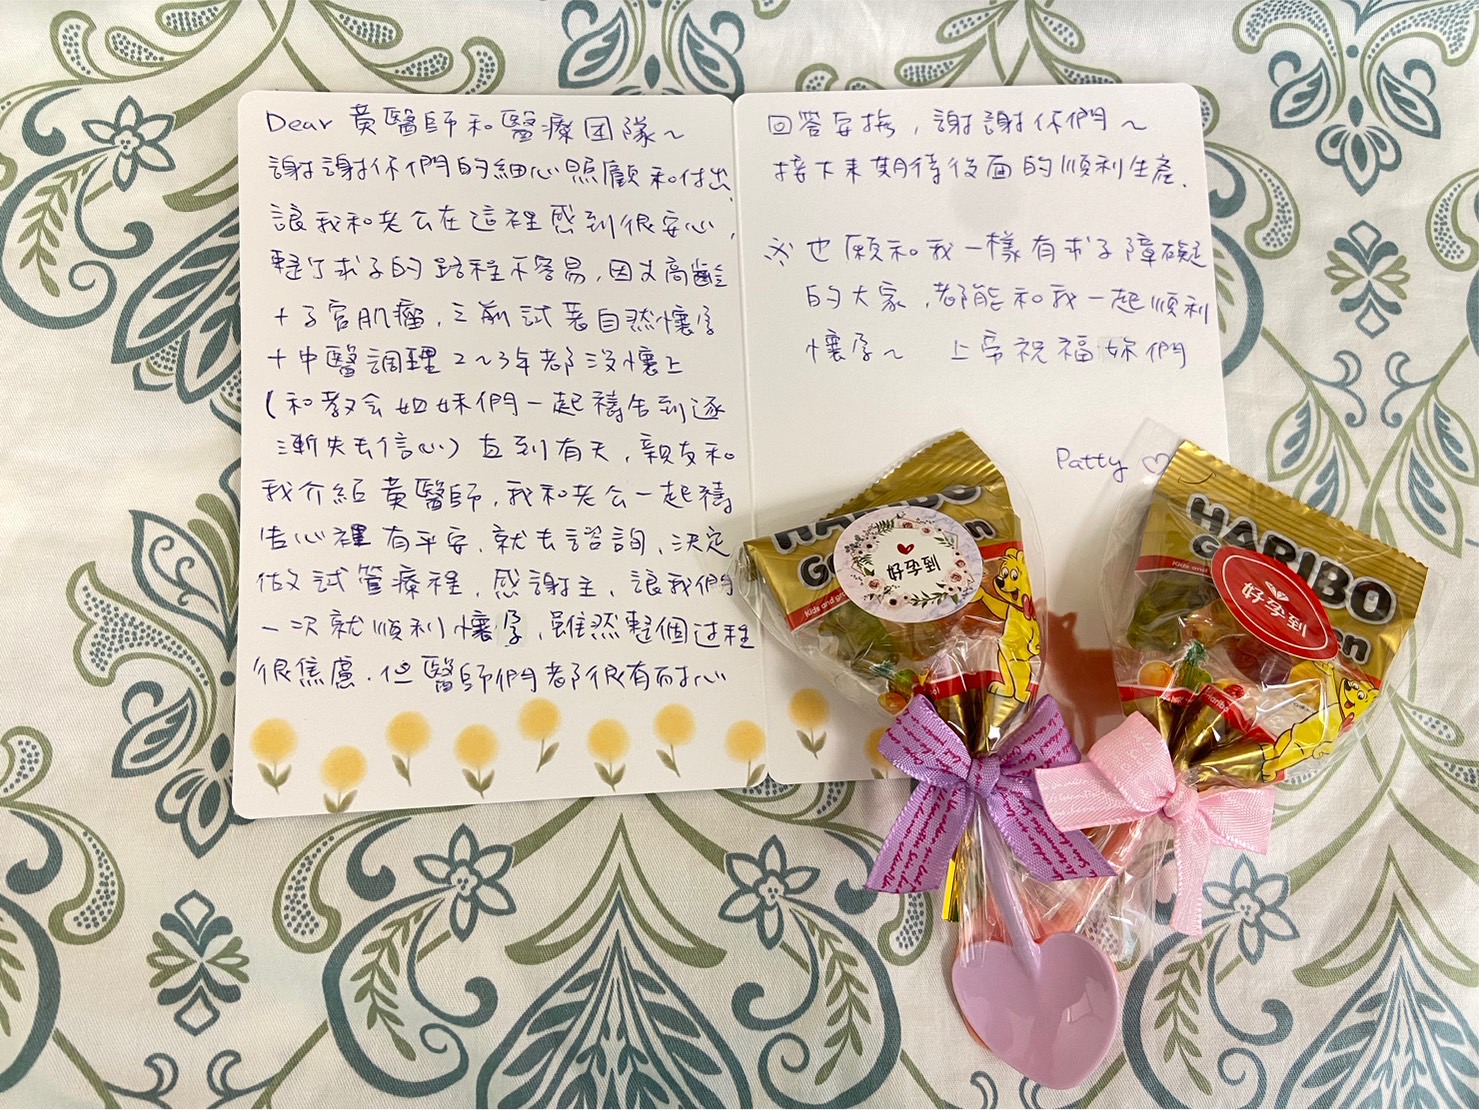 Dear 黃醫師和醫療團隊～
謝謝你們的細心照顧和付出,
讓我和老公在這裡感到很安心,
整個求子的路程不容易, 因文高齡
+子宮肌瘤, 之前試著自然懷孕
+中醫調理2～3年都沒懷上
(和教会姐妹們一起禱告到逐
漸失去信心) 直到有天, 親友和
我介紹黃醫師, 我和老公一起禱
告心裡有平安, 就去諮詢, 決定
做試管療程, 感謝主, 讓我們
一次就順利懷孕, 雖然整個过程
很焦慮. 但醫師們都很有耐心
回答安撫, 謝謝你們～
接下來期待後面的順利生產.
※也願和我一樣有求子障礙
的大家, 都能和我一起順利
懷孕～ 上帝祝福妳們
Patty ♡
HARIBO
Kids and
好孕到
HARIBO
Kids and